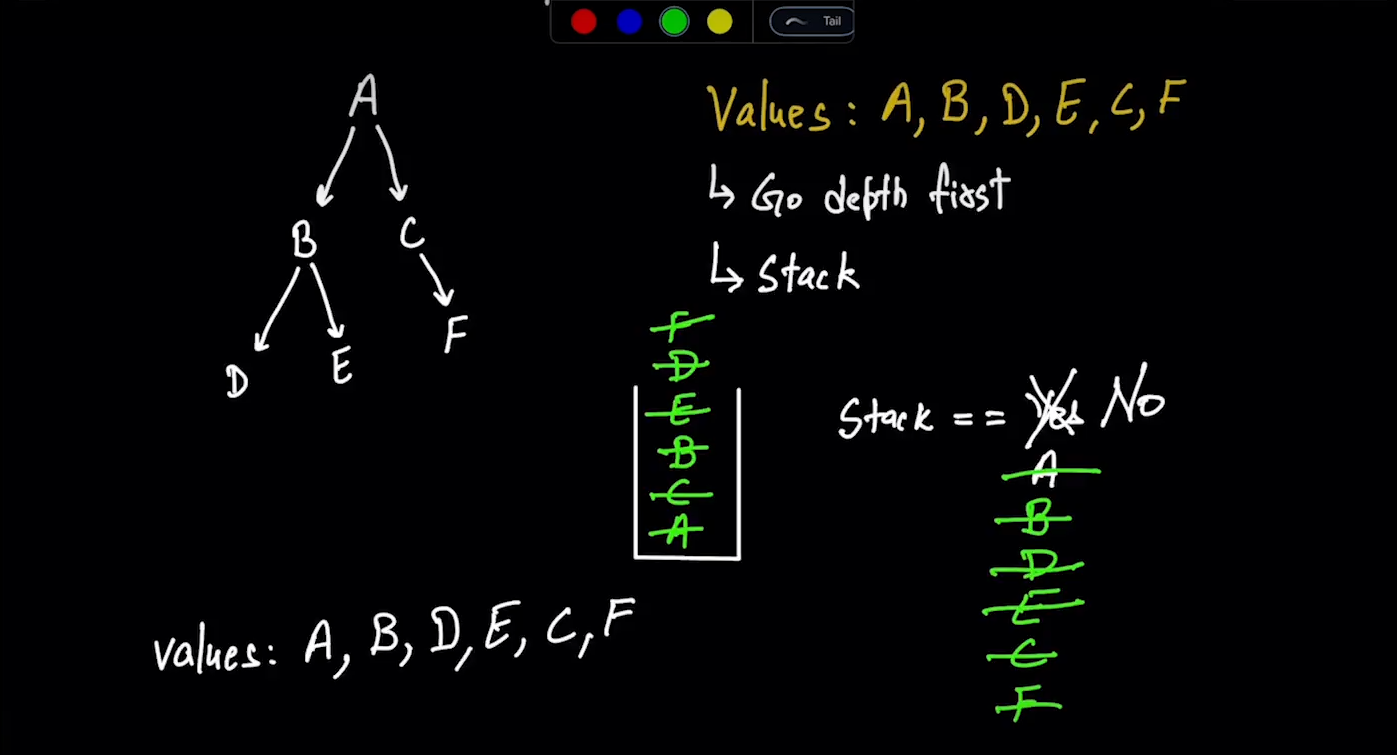 Tail
A
B C
D E F
Values: A, B, D, E, C, F
↳ Go depth first
↳ Stack
F
D
E
B
C
A
Stack == Yes No
A
B
D
E
C
F
values: A, B, D, E, C, F